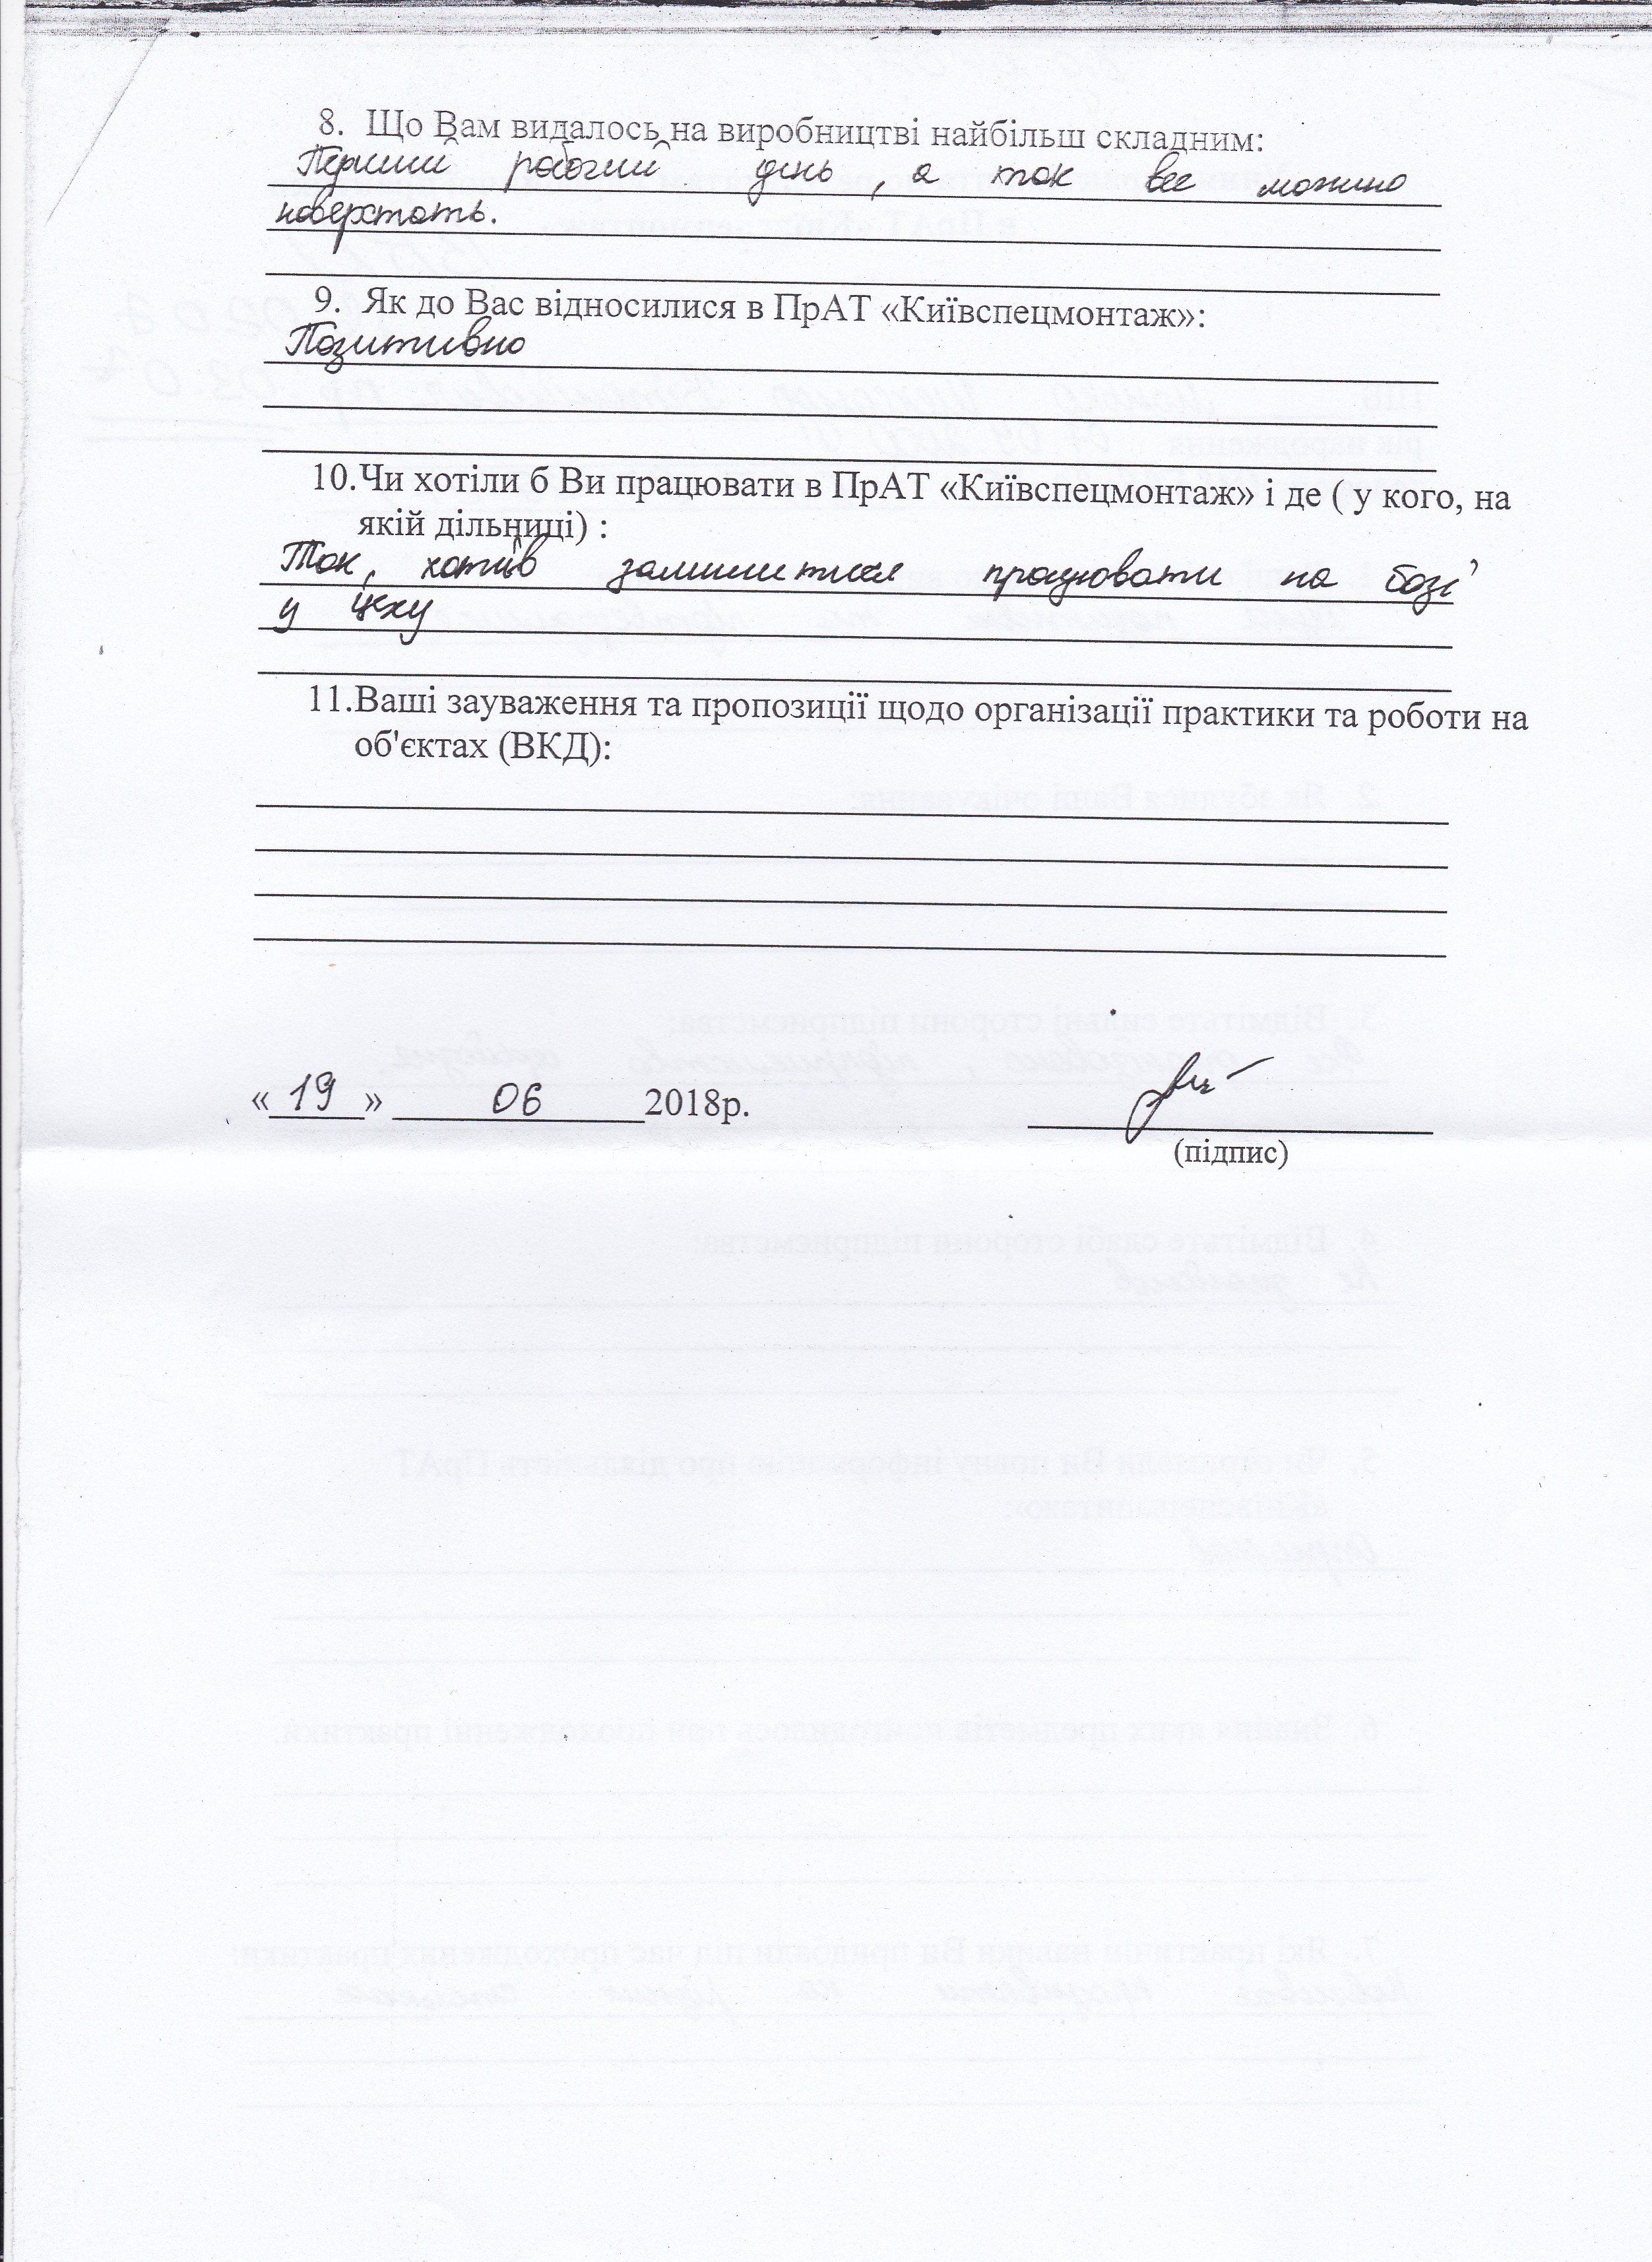 8. Що Вам видалось на виробництві найбільш складним:
Перший робочий день, а так все можно
наверстать.
9. Як до Вас відносилися в ПрАТ «Київспецмонтаж»:
Позитивно
10.Чи хотіли б Ви працювати в ПрАТ «Київспецмонтаж» і де ( у кого, на
якій дільниці) :
Так, хотів залишитися працювати на базі
у цеху
11.Ваші зауваження та пропозиції щодо організації практики та роботи на
об'єктах (ВКД):
«19» 06 2018р.
(підпис)